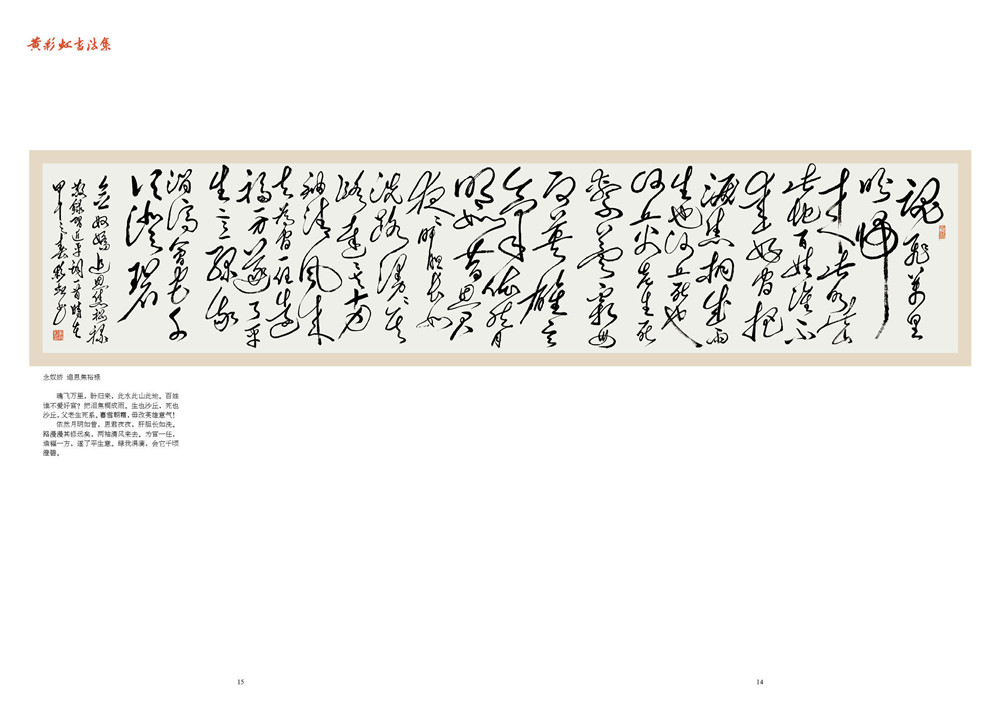 黄彩虹书法集
魂飛萬里
盼歸
来此水此山
此地百姓谁不
愛好官把
淚焦桐成雨
生也沙丘死也
沙丘父老生死
系暮雪朝霜毋
改英雄意
氣依然月
明如昔思君
夜夜肝胆长如
洗路漫漫其
修遠矣两
袖清風来
去為官一任造
福一方遂了平
生意绿我
涓滴會它千
顷澄碧
念奴嬌追思焦裕禄
敬録習近平詞一首時在
甲午之春
念奴娇 追思焦裕禄
魂飞万里，盼归来，此水此山此地。百姓
谁不爱好官？把泪焦桐成雨。生也沙丘，死也
沙丘，父老生死系。暮雪朝霜，毋改英雄意气！
依然月明如昔，思君夜夜，肝胆长如洗。
路漫漫其修远矣，两袖清风来去。为官一任，
造福一方，遂了平生意。绿我涓滴，会它千顷
澄碧。
15
14